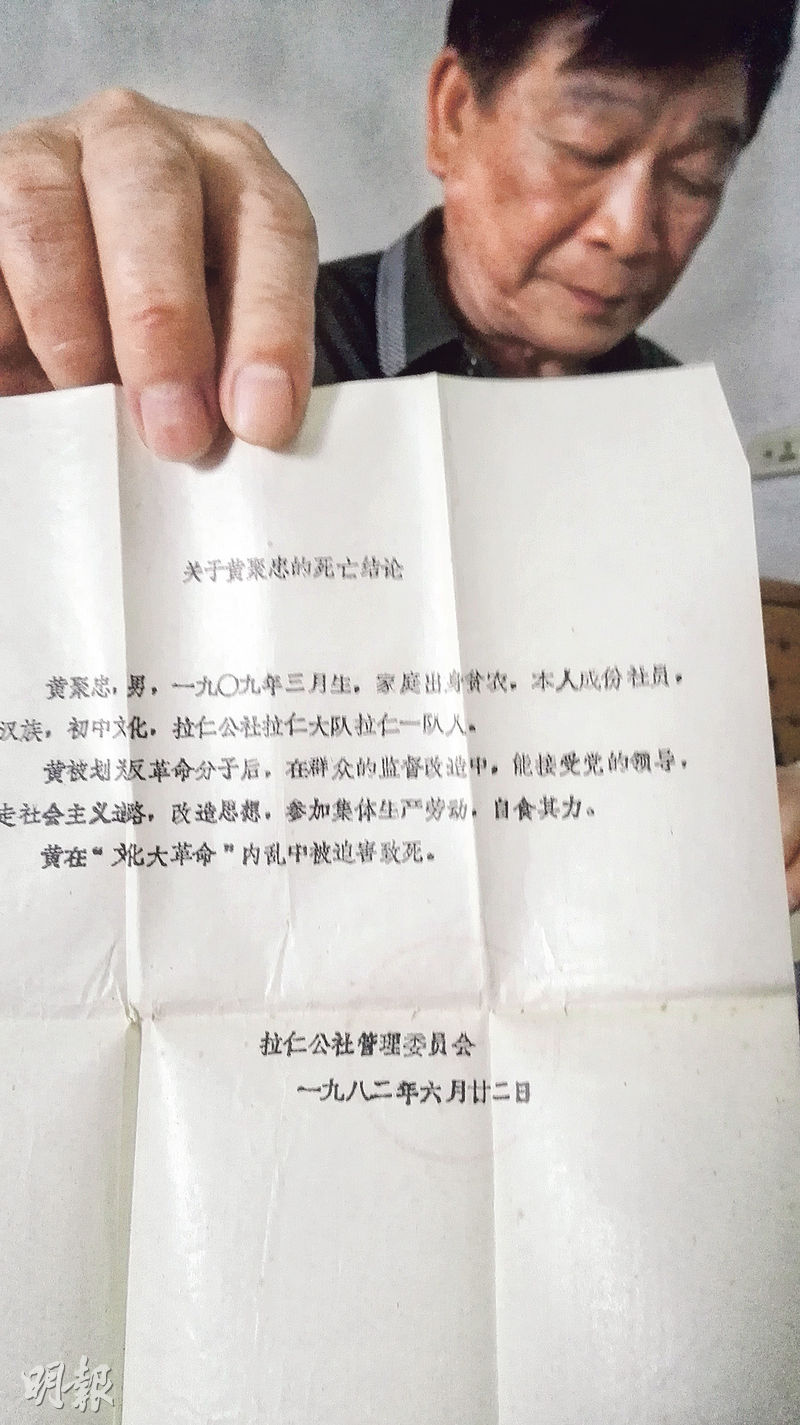 关于黄聚忠的死亡结论
黄聚忠，男，一九〇九年三月生，家庭出身贫农，本人成份社员，
汉族，初中文化，拉仁公社拉仁大队拉仁一队人。
黄被划为反革命分子后，在群众的监督改造中，能接受党的领导，
走社会主义道路，改造思想，参加集体生产劳动，自食其力。
黄在“文化大革命”内乱中被迫害致死。
拉仁公社管理委员会
一九八二年六月廿二日
明報